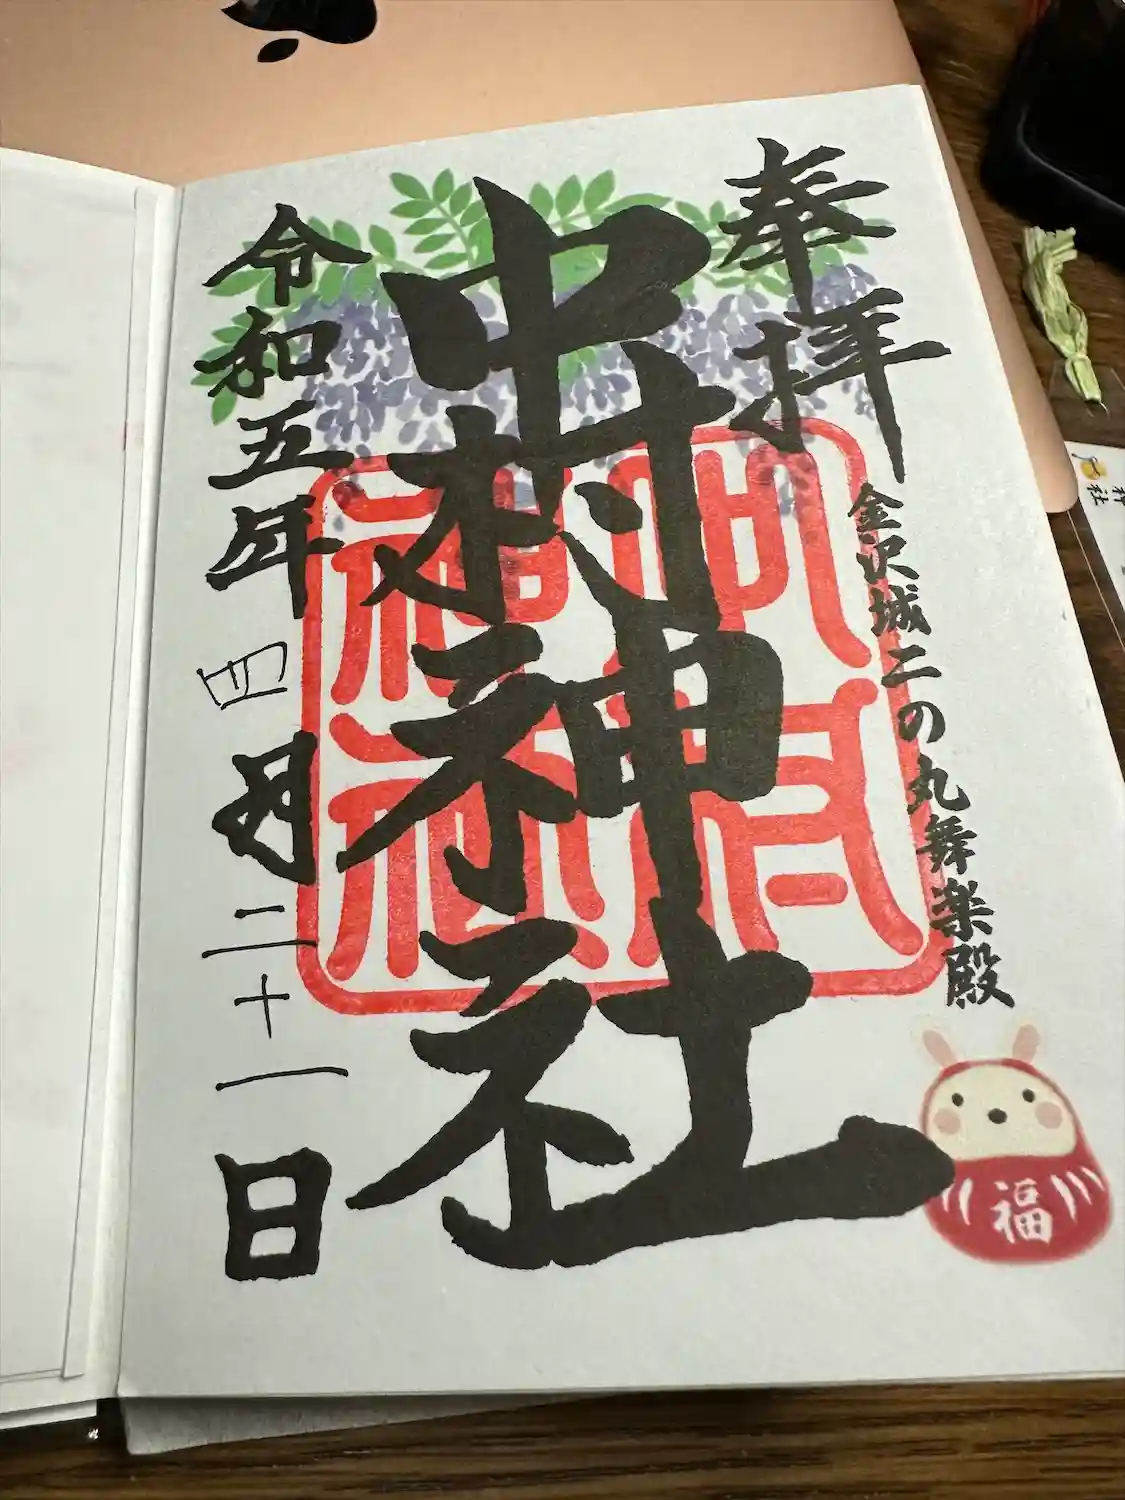 奉拝
金沢城二の丸舞楽殿
中村神社
令和五年四月二十一日
福